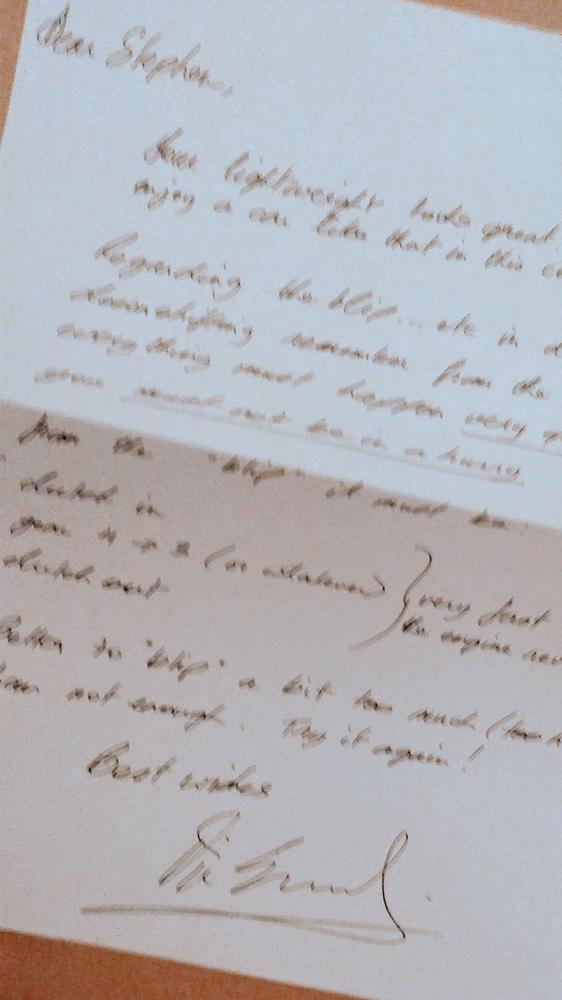 Dear Stephen,
Your lightweight looks great.
enjoy a car like that in this
Regarding the blip... etc in
downshifting remember from the
everything must happen very
you must not be in a hurry
from the "blip" it must be:
clutch in
gear 4 → 3 (or whatever) } very fast
clutch out the engine rev
Better to "blip" a bit too much (too
than not enough. Try it again!
Best wishes